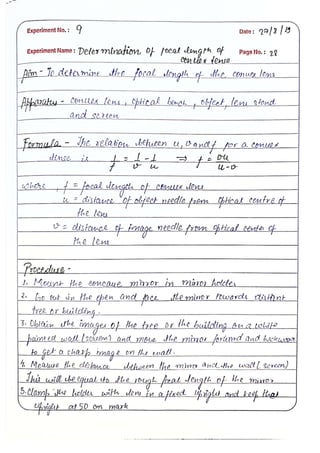 Experiment No. : 9 Date : 29/8/19
Experiment Name : Determination of focal length of Page No. : 28
convex lense
Aim - To determine the focal length of the convex lens
Apparatus - Convex lens, optical bench, object, lens stand
and screen
Formula - The relation between u, v and f for a convex
lense is 1/f = 1/v - 1/u ⇒ f = uv/u-v
where, f = focal length of convex lens
u = distance of object needle from optical centre of
the lens
v = distance of image needle from optical centre of
the lens
Procedure -
1. Mount the concave mirror in mirror holder
2. Go out in the open and face the mirror towards distant
tree or building.
3. Obtain the images of the tree or the building on a white
painted wall (screen) and move the mirror forward and backward
to get a sharp image on the wall.
4. Measure the distance between the mirror and the wall (screen)
This will be equal to the rough focal length of the mirror
5. Clamp the holder with lens in a fixed upright and keep that
upright at 50 cm mark